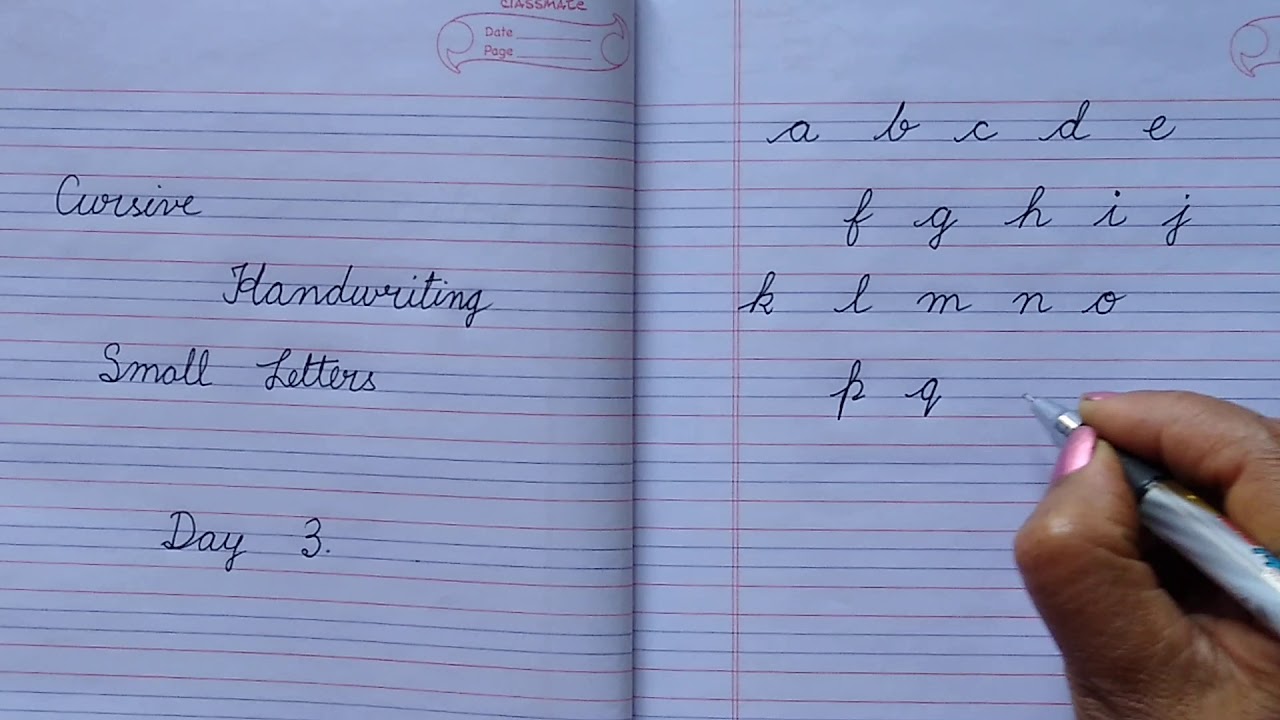 CLASSMATE
Date
Page
Cursive
Handwriting
Small Letters
Day 3.
a b c d e
f g h i j
k l m n o
p q